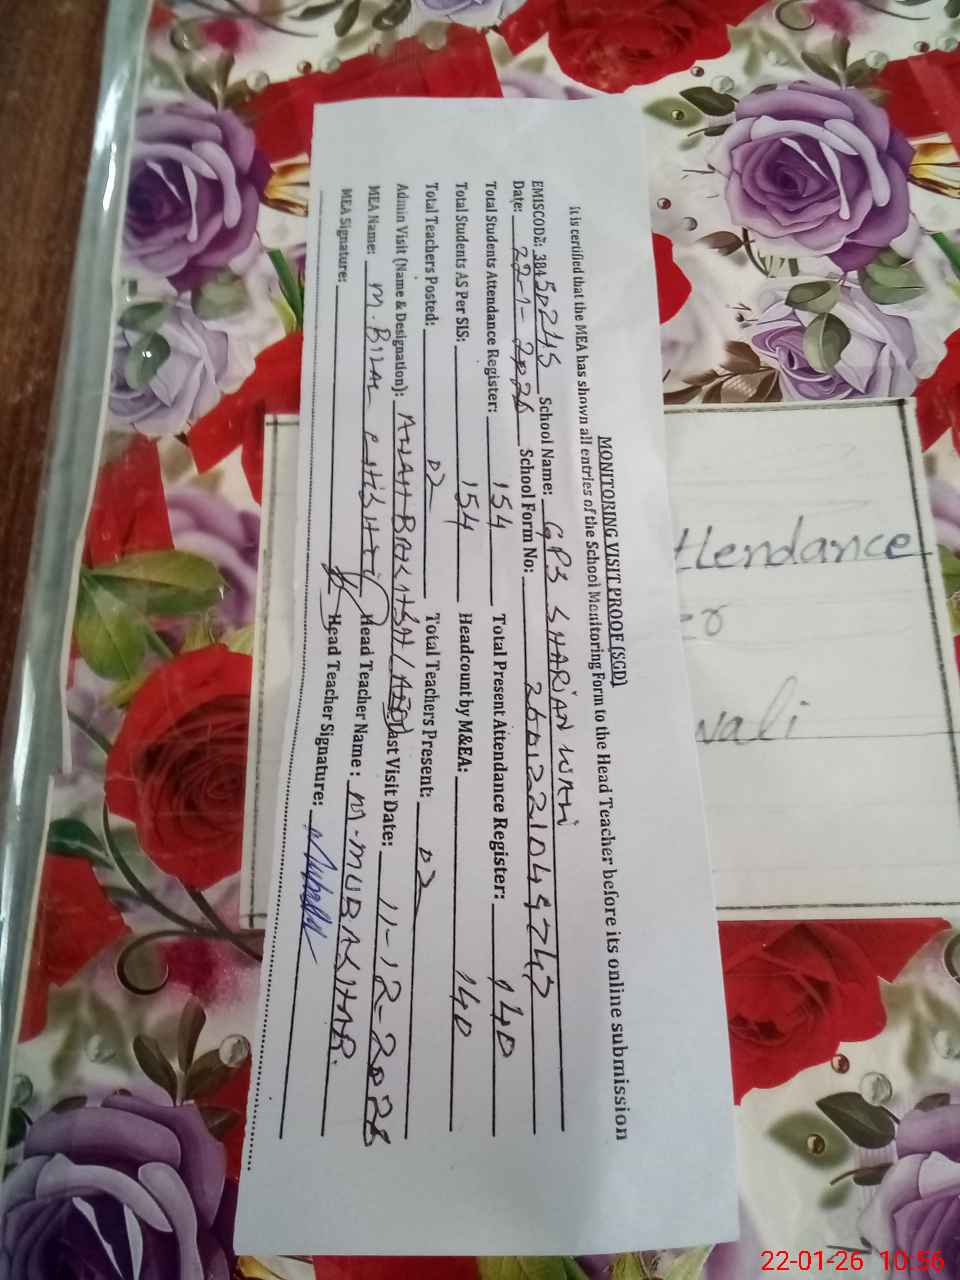 MONITORING VISIT PROOF (SGD)
It is cerified that the MEA has shown all entries of the School Monitoring Form to the Head Teacher before its online submission
EMISCODE: 384 School Name: GPS SHARIAN WALI
Date: 22-1-2026 School Form No:
Total Students Attendance Register: 154 Total Present Attendance Register: 140
Total Students AS Per SIS: 154 Headcount by M&EA: 140
Total Teachers Posted: 02 Total Teachers Present: 02
Admin Visit (Name & Designation): Last Visit Date: 11-12-
MEA Name: M. BILAL Head Teacher Name: M. MUBASHAR.
MEA Signature: Head Teacher Signature:
ttendance
wali
22-01-26 10:56